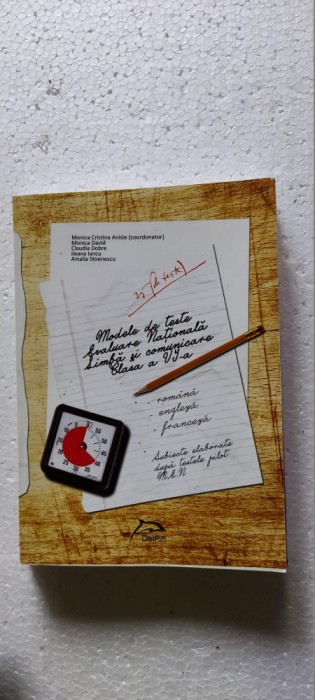 Monica Cristina Anisie (coordonator)
Monica David
Claudia Dobre
Ileana Iancu
Amalia Stoenescu
25 (de teste)
Modele de teste
Evaluare Națională
Limbă și comunicare
Clasa a VI-a
- română
- engleză
- franceză
Subiecte elaborate
după testele pilot
M.E.N
DelFin